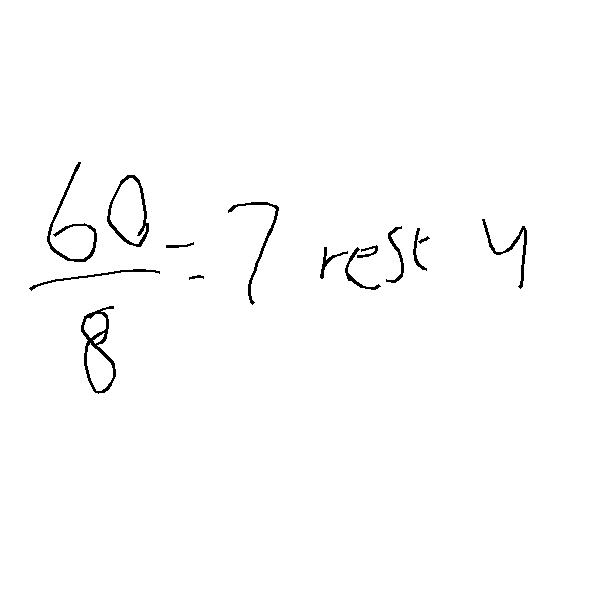 60/8 = 7 rest 4